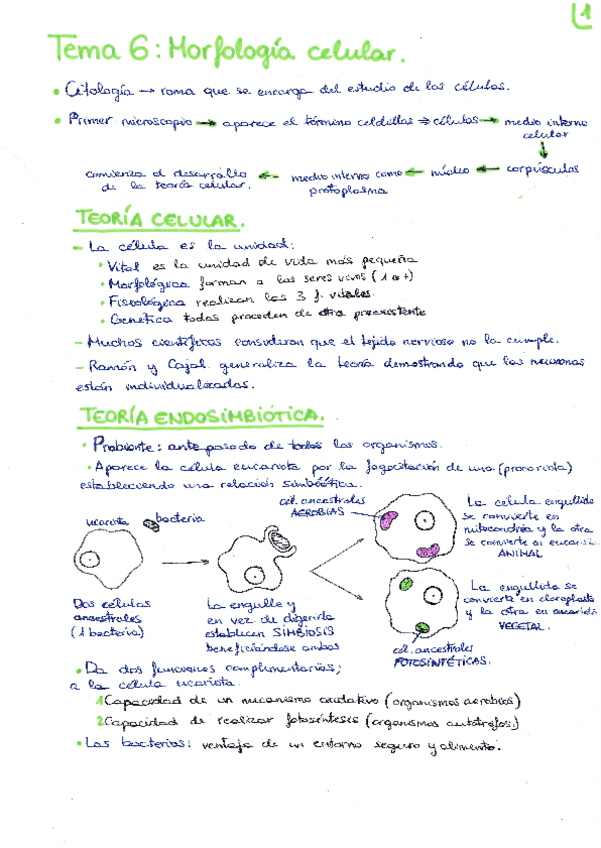 1
Tema 6: Morfología celular.
• Citología → rama que se encarga del estudio de las células.
• Primer microscopio → aparece el término celdillas ⇒ células → medio interno
celular
↓
comienza el desarrollo ← medio interno como ← núcleo ← corpúsculos
de la teoría celular. protoplasma
TEORÍA CELULAR.
- La célula es la unidad:
• Vital es la unidad de vida más pequeña
• Morfológica forman a los seres vivos (1 o +)
• Fisiológica realizan las 3 f. vitales.
• Genética todas proceden de otra preexistente
- Muchos científicos consideran que el tejido nervioso no la cumple.
- Ramón y Cajal generaliza la teoría demostrando que las neuronas
están individualizadas.
TEORÍA ENDOSIMBIÓTICA.
• Probionte: antepasado de todos los organismos.
• Aparece la célula eucariota por la fagocitación de una (procariota)
estableciendo una relación simbiótica.
cél. ancestrales
AEROBIAS
urcariota bacteria
La célula engullida
se convierte en
mitocondria y la otra
se convierte en eucariota.
ANIMAL
Dos células
ancestrales
(1 bacteria)
La engulle y
en vez de digerirla
establecen SIMBIOSIS
beneficiándose ambas
La engullida se
convierte en cloroplasto
y la otra en eucariota
VEGETAL.
cél. ancestrales
FOTOSINTÉTICAS.
• Da dos funciones complementarias;
a la célula urcariota.
1 Capacidad de un mecanismo oxidativo (organismos aerobios)
2 Capacidad de realizar fotosíntesis (organismos autótrofos.)
• Las bacterias: ventaja de un entorno seguro y alimento.